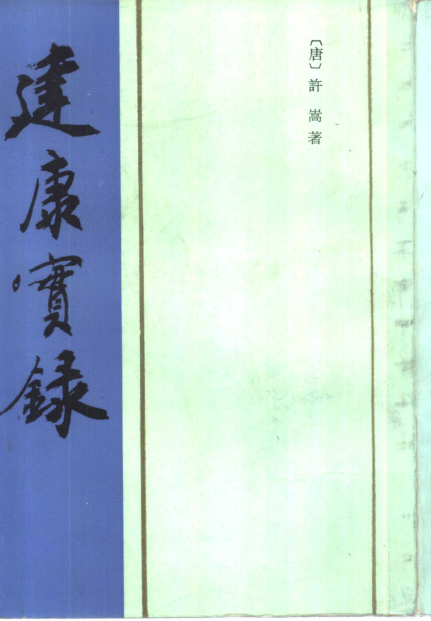 〔唐〕許嵩著
建康實錄